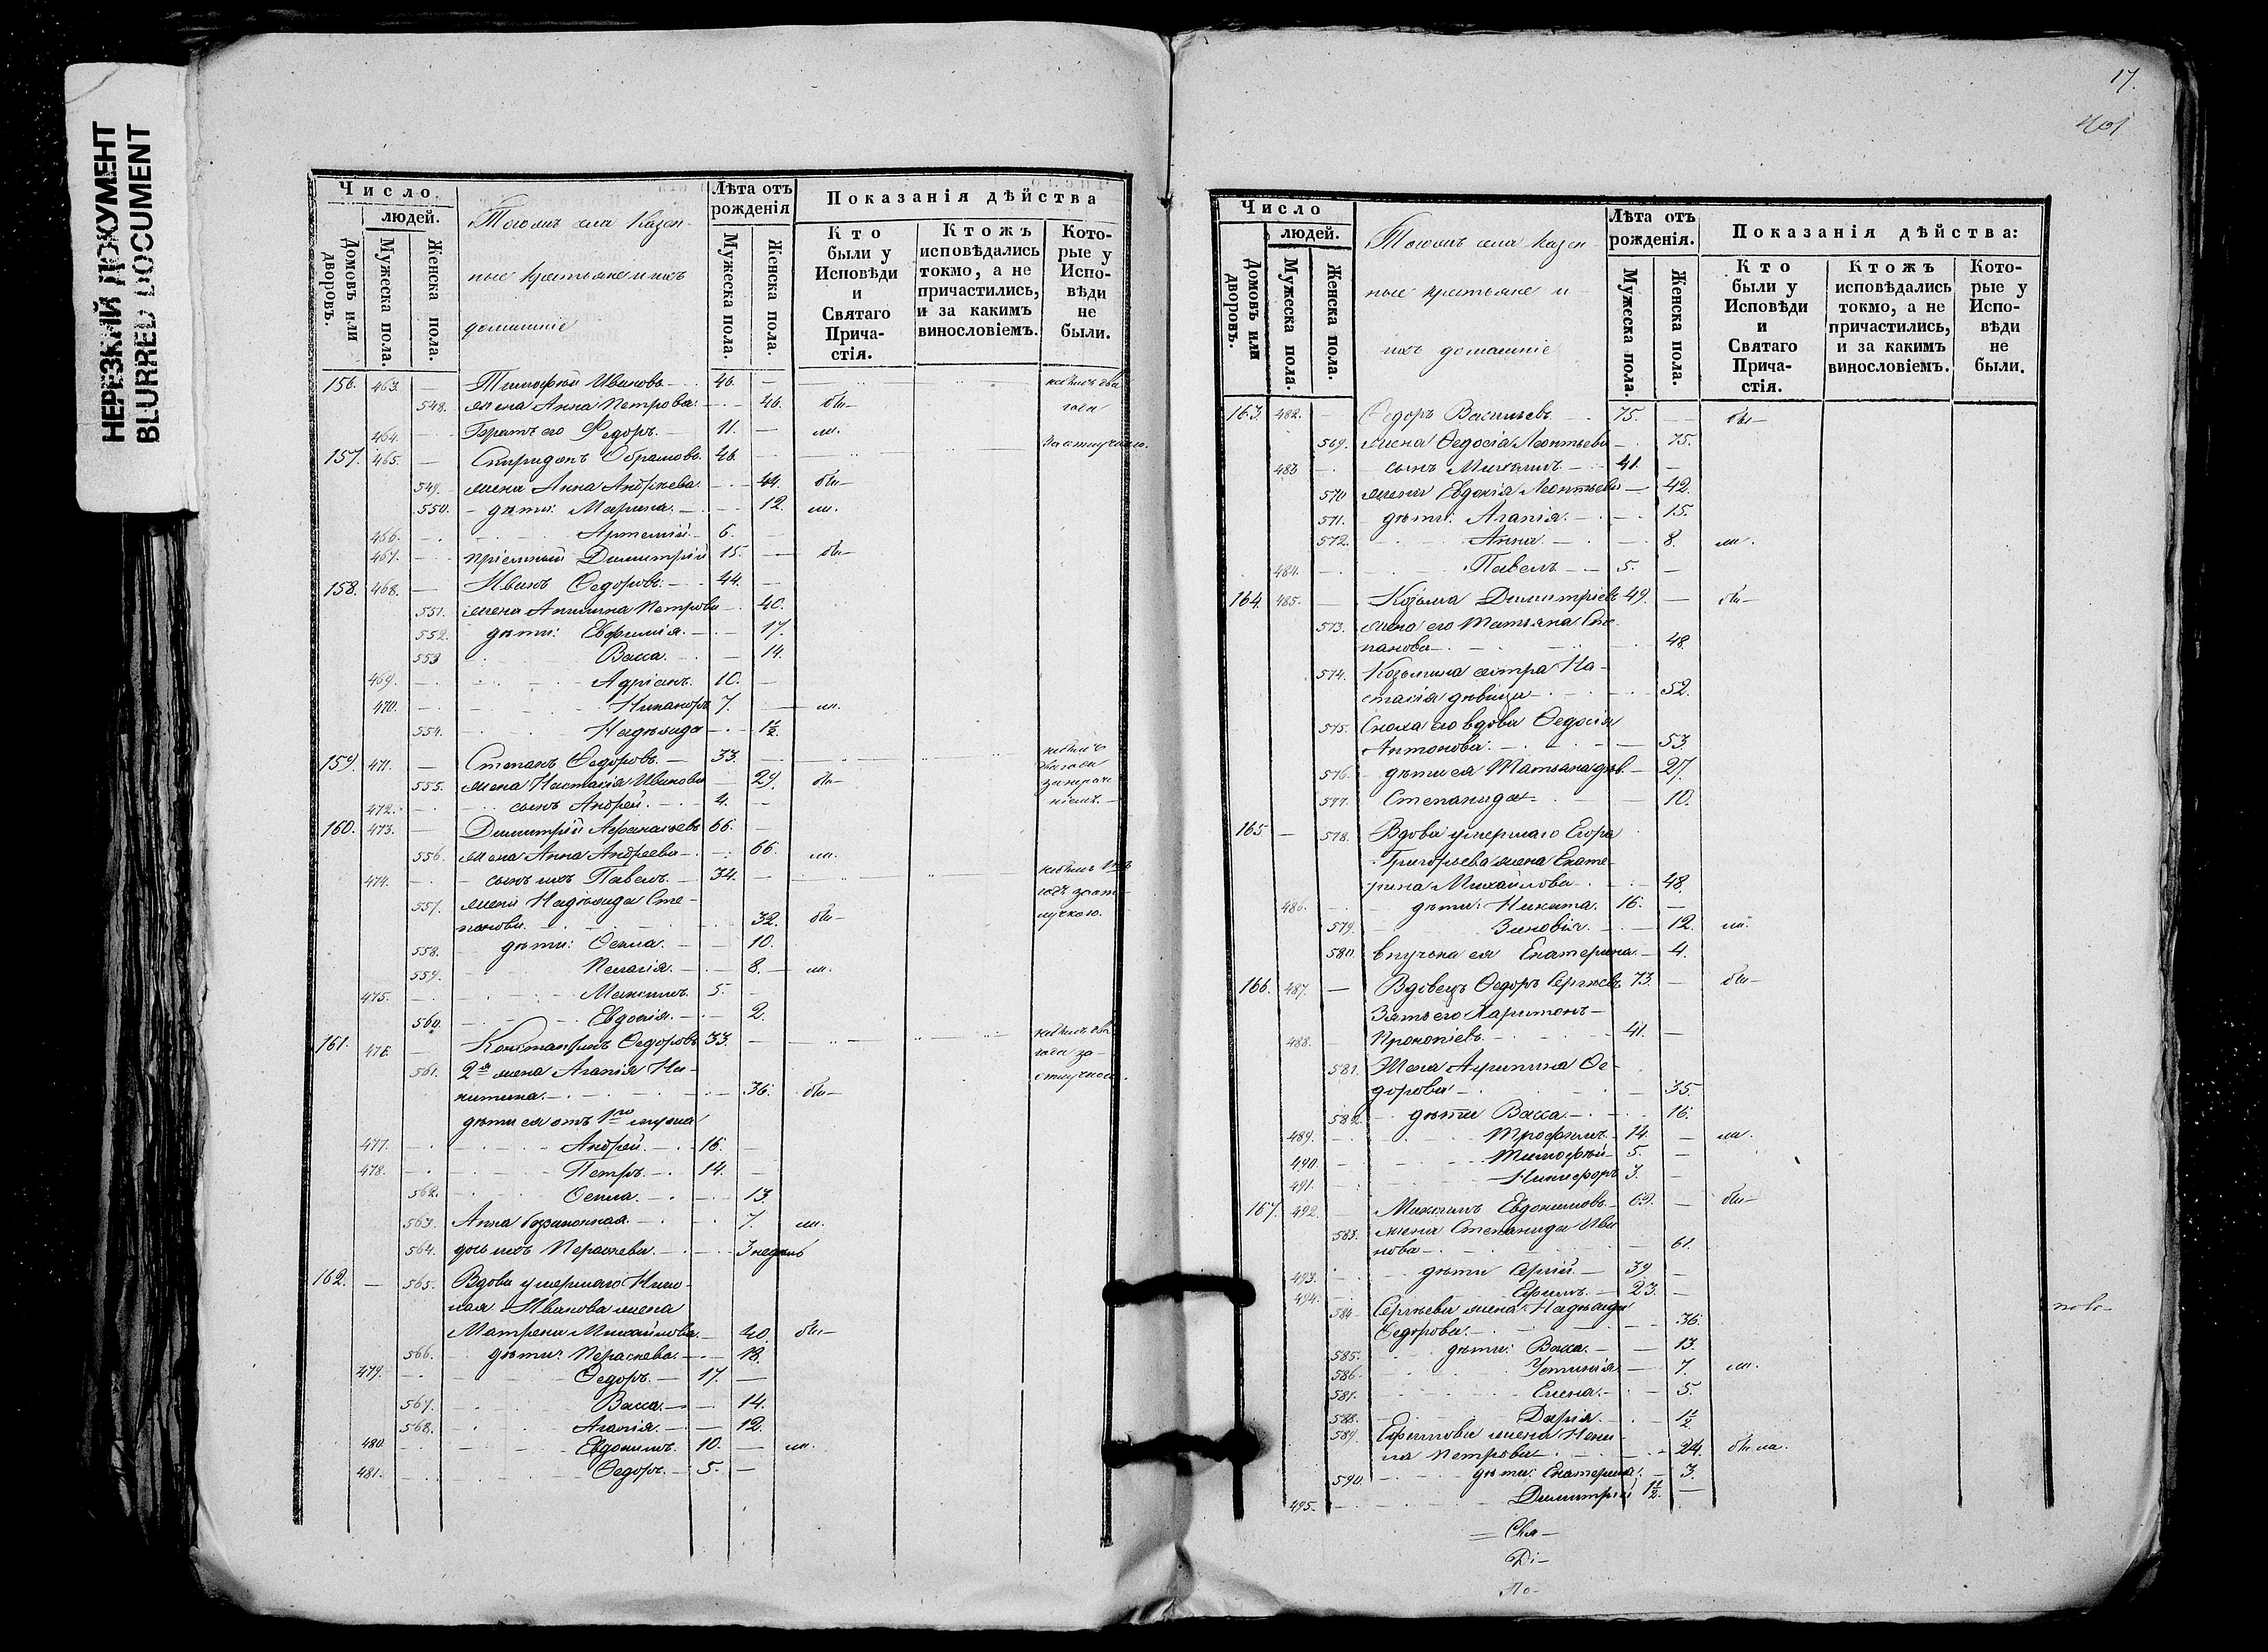 НЕРЕЗКИЙ ДОКУМЕНТ
BLURRED DOCUMENT
Число
людей.
Домовъ или дворовъ.
Мужеска пола.
Женска пола.
Тогожъ села Казен-
ные крестьяне и ихъ
домашніе
Лѣта отъ рожденія
Мужеска пола.
Женска пола.
Показанія дѣйства
Кто были у Исповѣди и Святаго Прича-стія.
Ктожъ исповѣдались токмо, а не причастились, и за какимъ винословіемъ.
Кото-рые у Испо-вѣди не были.
156. 463. — Тимофей Ивановъ 46. —
548. жена Анна Петрова 46. бы—
464. Братъ его Федоръ 11. — ли.
157. 465. — Спиридонъ Абрамовъ 46.
549. жена Анна Андреева 44. бы—
550. дѣти: Марина 12. ли.
466. Артемій 6.
467. пріемный Димитрій 15. — бы—
158. 468. — Иванъ Ѳедоровъ 44. —
551. жена Акилина Петрова 40.
552. дѣти: Евфимія 17.
553 Васса 14.
469. Адріанъ 10. —
470. Никаноръ 7. — ли.
554. Надежда 1½
159. 471. — Степанъ Ѳедоровъ 33. —
555. жена Настасія Иванова 29. бы—
472. сынъ Андрей 4. —
160. 473. — Димитрій Афанасьевъ 66. —
556. жена Анна Андреева 66. ли.
474. сынъ ихъ Павелъ 34. —
557. жена Надежда Сте-
панова 32. бы—
558. дѣти: Ѳекла 10.
559. Пелагія 8. ли.
475. Максимъ 5. —
560. Евдокія 2.
161. 476. — Константинъ Ѳедоровъ 33. —
561. 2я жена Агапія Ни-
китина 36. бы—
дѣти ея отъ 1го мужа
477. Андрей 16. —
478. Петръ 14. —
562. Ѳекла 13.
563. Анна беззаконная 7. ли.
564. дочь ихъ Пераскева 3 недѣль
162. — 565. Вдова умершаго Нико-
лая Иванова жена
Матрена Михайлова 40. бы—
566. дѣти: Пераскева 18.
479. Ѳедоръ 17. —
567. Васса 14.
568. Агапія 12.
480 Евдокимъ 10. — ли.
481. Ѳедоръ 5. —
17.
401
Число
людей.
Домовъ или дворовъ.
Мужеска пола.
Женска пола.
Тогожъ села Казен-
ные крестьяне и
ихъ домашніе
Лѣта отъ рожденія.
Мужеска пола.
Женска пола.
Показанія дѣйства:
Кто были у Исповѣди и Святаго Прича-стія.
Ктожъ исповѣдались токмо, а не причастились, и за какимъ винословіемъ.
Кото-рые у Испо-вѣди не были.
163. 482. — Ѳедоръ Васильевъ 75. — бы—
569. жена Ѳедосія Леонтьева 75.
483 сынъ Михаилъ 41. —
570 жена Евдокія Леонтьева 42.
571. дѣти: Агапія 15.
572. Анна 8. ли.
484. Павелъ 5. —
164. 485. — Козьма Димитріевъ 49. — бы—
573. жена его Татьяна Сте
панова 48.
574. Козьмина сестра На-
стасія дѣвица 52.
575. Сноха его вдова Ѳедосія
Антонова 53.
576. дѣти ея Татьяна дѣв. 27.
577. Степанида 10.
165 — 578. Вдова умершаго Егора
Григорьева жена Екате-
рина Михайлова 48.
486. дѣти: Никита 16. —
579. Зиновія 12. ли.
580. внучка ея Екатерина 4.
166. 487. — Вдовецъ Ѳедоръ Сергѣевъ 73. — бы—
Зять его Харитонъ
488. Прокопіевъ 41. —
581. Жена Акулина Ѳе-
дорова 35.
582. дѣти Васса 16.
489. Трофимъ 14. — ли.
490. Тимофей 5. —
491. Никифоръ 3. —
167. 492. — Максимъ Евдокимовъ 69. — бы—
583. жена Степанида Ива
нова 61.
493. дѣти Сергій 39 —
494. Ефимъ 23. —
584 Сергѣева жена Надежда
Ѳедорова 36.
585. дѣти: Васса 13.
586. Устинія 7. ли.
587. Елена 5.
588. Дарія 1½
589. Ефимова жена Нени-
ла Петрова 24. была.
590. дѣти: Екатерина 3.
495. Димитрій 1½. —
Свя—
Ді—
По—